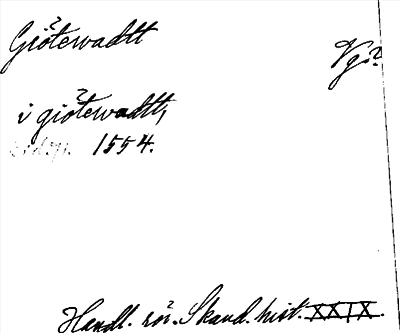 Giötevadtt
Vg?
i giötevadtt,
1554.
Handl. rör. Skand. hist. XXIX.